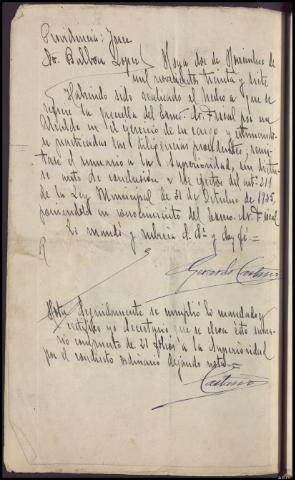 Providencia: Juez
Sr. Balboa Lopez
Moya dos de Noviembre de
mil novecientos treinta y siete
Habiendo sido realizado el hecho a que se
refiere la querella del Excmo. Sr. Fiscal por un
Alcalde en el ejercicio de su cargo y
practicadas las diligencias procedentes,
el sumario a la Superioridad, sin
auto de conclusión y a los efectos del art. 211
de la Ley Municipal de 31 de Octubre de 1935,
poniendolo en conocimiento del Excmo. Sr. Fiscal
Lo mandó y rubrica el Sr. y doy fé =
Gerardo
Nota/ Seguidamente se cumplió lo mandado y
certifico yo Secretario que se eleva este
rio compuesto de 31 folios a la Superioridad
por el conducto ordinario dejando nota =